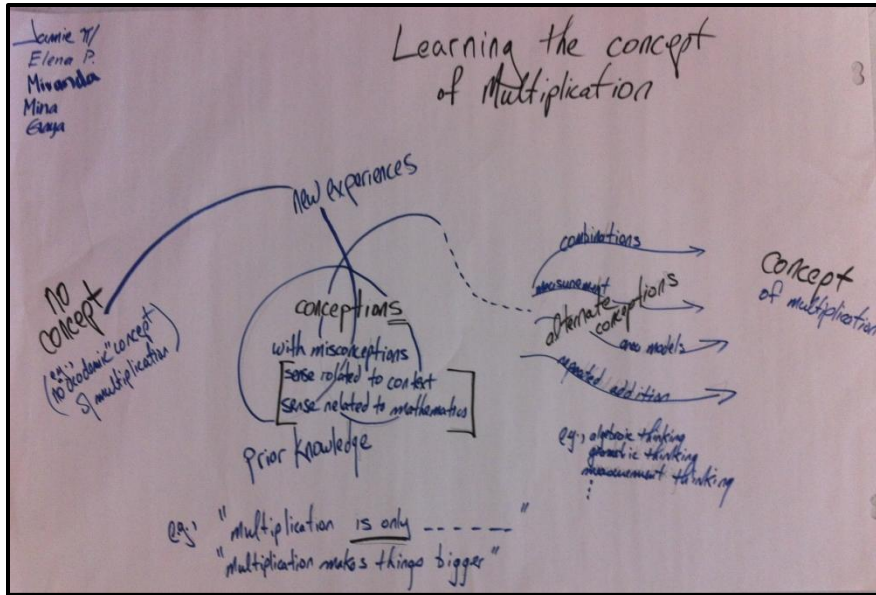 Jamie
Elena P.
Miranda
Mina
Learning the concept
of Multiplication
new experiences
no
concept
(e.g.,
no "academic" concept
of multiplication)
conceptions
with misconceptions
sense related to context
sense related to mathematics
prior knowledge
combinations
measurement
alternate conceptions
area models
repeated addition
concept
of multiplication
eg., algebraic thinking
geometric thinking
measurement thinking
eg., "multiplication is only -------"
"multiplication makes things bigger"